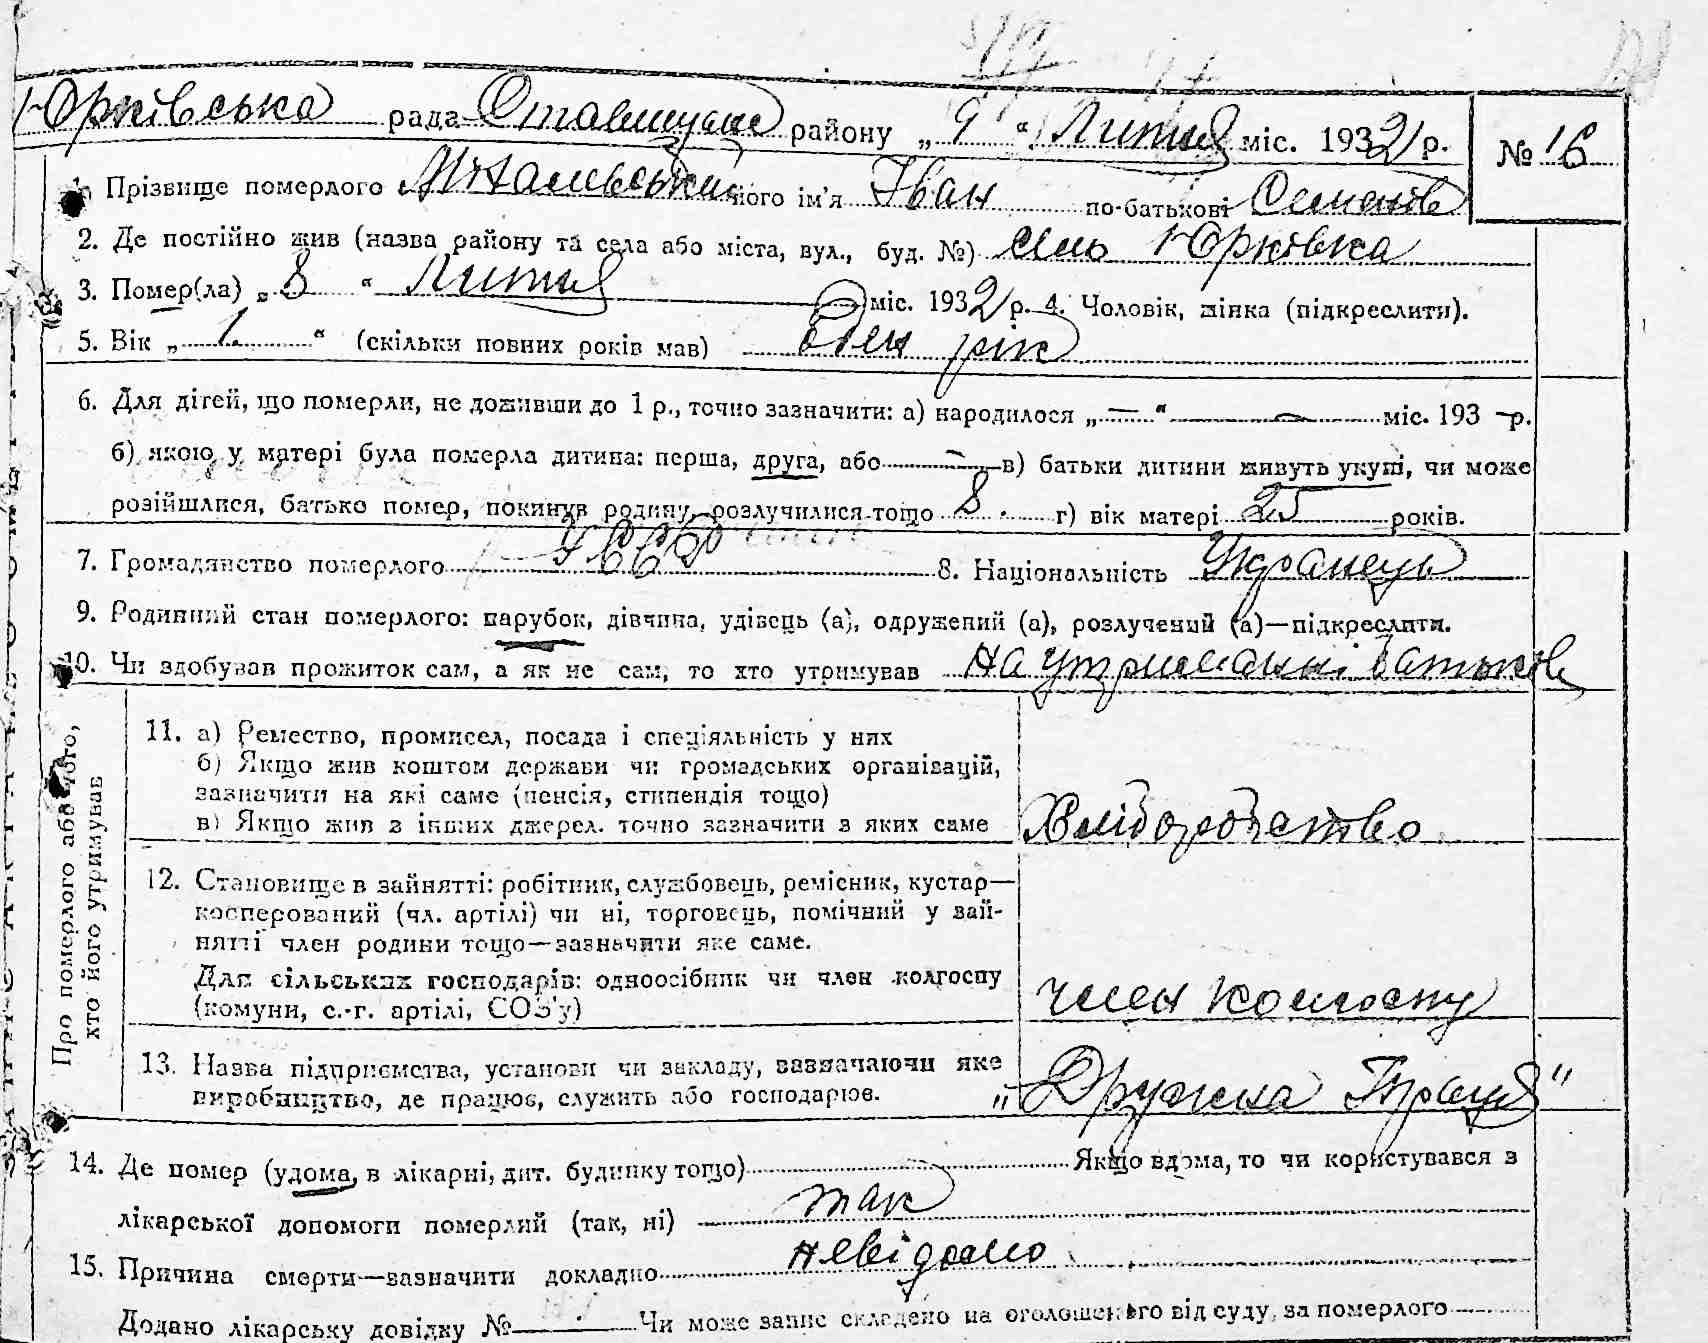 Юрківська рада Ставищан району „ 9 “ Липня міс. 1932 р. № 16
1. Прізвище померлого його ім'я Іван по-батькові Семенов
2. Де постійно жив (назва району та села або міста, вул., буд. №) село Юрківка
3. Помер(ла) „ 8 “ Липня міс. 1932 р. 4. Чоловік, жінка (підкреслити).
5. Вік „ 1. “ (скільки повних років мав) Оден рік
6. Для дітей, що померли, не доживши до 1 р., точно зазначити: а) народилося „ — “ — міс. 193 — р.
б) якою у матері була померла дитина: перша, друга, або — в) батьки дитини живуть укупі, чи може
розійшлися, батько помер, покинув родину, розлучилися тощо 8. г) вік матері 25 років.
7. Громадянство померлого УССР 8. Національність Українець
9. Родинний стан померлого: парубок, дівчина, удівець (а), одружений (а), розлучений (а)—підкреслити.
10. Чи здобував прожиток сам, а як не сам, то хто утримував на утриманні батьків
Про померлого або того, хто його утримував
11. а) Ремество, промисел, посада і спеціяльність у них
б) Якщо жив коштом держави чи громадських організацій,
зазначити на які саме (пенсія, стипендія тощо)
в) Якщо жив з інших джерел, точно зазначити з яких саме Хліборобство
12. Становище в зайнятті: робітник, службовець, ремісник, кустар—
кооперований (чл. артілі) чи ні, торговець, помічний у зай-
нятті член родини тощо—зазначити яке саме.
Для сільських господарів: одноосібник чи член колгоспу
(комуни, с.-г. артілі, СОЗ'у) член колгоспу
13. Назва підприємства, установи чи закладу, зазначаючи яке
виробництво, де працює, служить або господарює. „Дружна Праця“
14. Де помер (удома, в лікарні, дит. будинку тощо) Якщо вдома, то чи користувався з
лікарської допомоги померлий (так, ні) так
15. Причина смерти—зазначити докладно невідомо
Додано лікарську довідку № — Чи може запис складено на оголошеного від суду за померлого